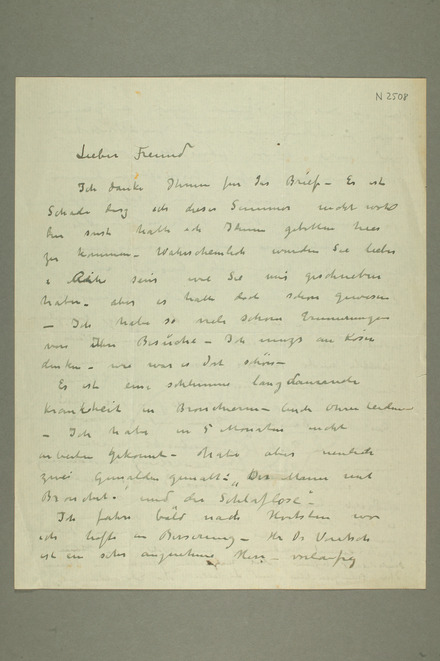 N 2508
Lieber Freund
Ich danke Ihnen für Ihr Brief – Es ist
Schade dass ich dieser Sommer nicht wohl
bin sonst hatte ich Ihnen gebitten hier
zu kommen – Wahrscheinlich wurden Sie lieber
i sein wie Sie mir geschrieben
haben – aber es hatte doch schon gewesen
– Ich habe so viele schone Erinnerungen
von Ihre Besuche – Ich muss an Kosen
denken – wie war es dort schön –
Es ist eine schlimme langdauernde
Krankheit in Bronchierne – auch Ohren
– Ich habe in 5 Monaten nicht
arbeiten gekonnt – Habe aber neulich
zwei Gemälden gemalt: „Der Mann mit
Bronchit –" und der Schlaflose" –
Ich fahre bald nach Hvitsten wo
ich hoffe an Besserung – Hr Dr
ist ein sehr angenehme Herr – vorlaufig